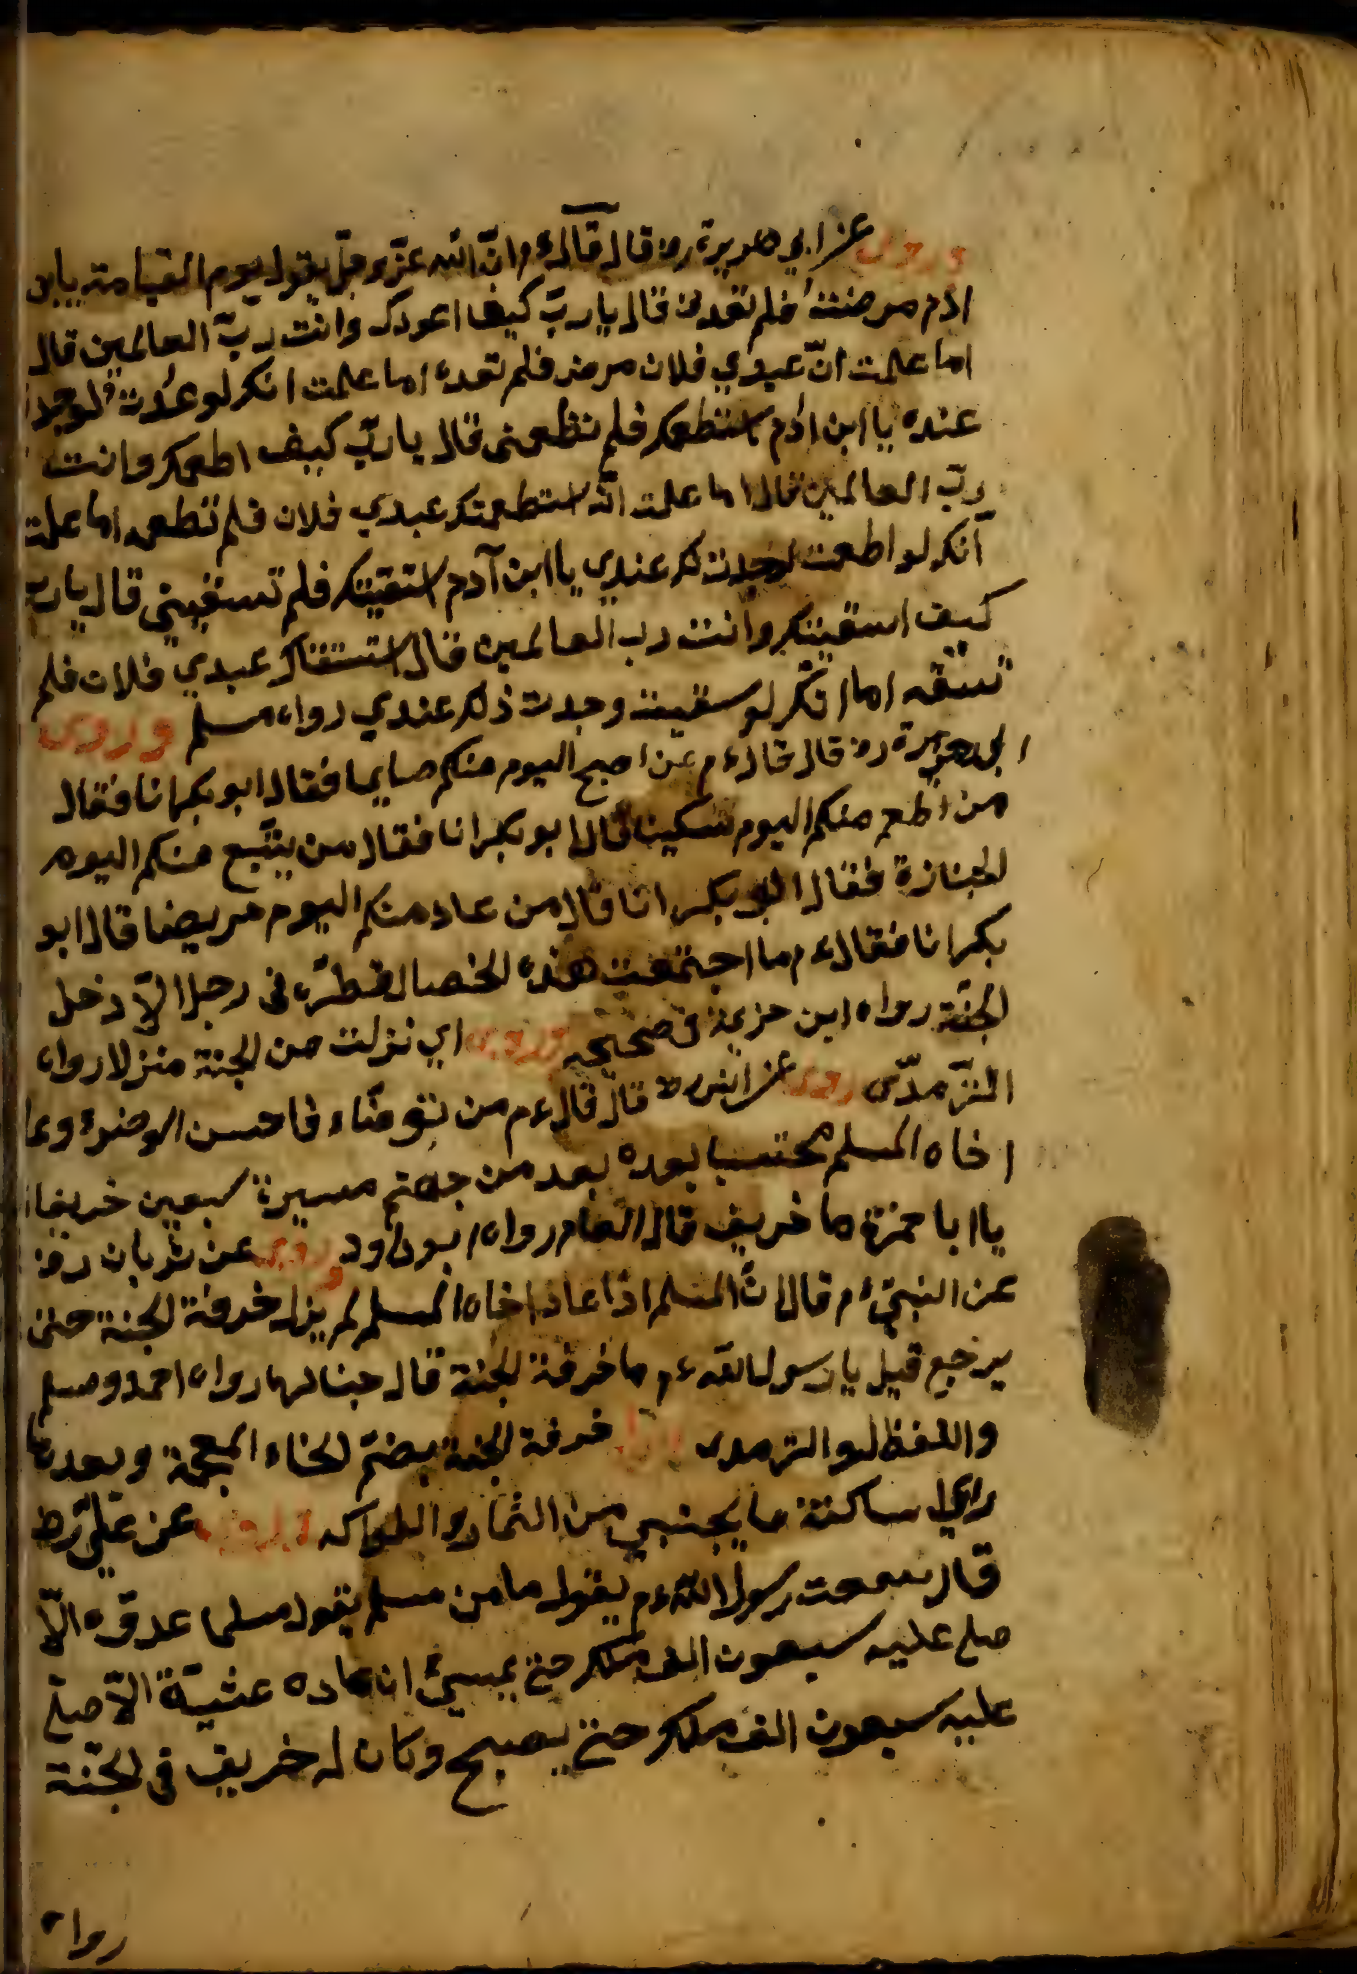 وروى عن ابي هريرة رض قال قال ءم ان الله عز وجل يقول يوم القيامة يابن
ادم مرضت فلم تعدنى قال يا رب كيف اعودك وانت رب العالمين قال
اما علمت ان عبدي فلان مرض فلم تعده اما علمت انك لو عدت
عنده يا ابن ادم استطعمتك فلم تطعمنى قال يا رب كيف اطعمك وانت
رب العالمين قال اما علمت انه استطعمتك عبدي فلان فلم تطعمه اما علمت
انك لو اطعمت لوجدت ذلك عندي يا ابن آدم استقيتك فلم تسقينى قال يا رب
كيف اسقيتك وانت رب العالمين قال استسقاك عبدي فلان فلم
تسقه اما انك لو سقيت وجدت ذلك عندي رواه مسلم وروى
ابى هريرة رض قال قال ءم من اصبح اليوم منكم صايما فقال ابو بكر انا فقال
من اطعم منكم اليوم مسكينا قال ابو بكر انا فقال من يتبع منكم اليوم
لجنازة فقال ابو بكر انا قال من عاد منكم اليوم مريضا قال ابو
بكر انا فقال ءم ما اجتمعت هذه الخصال قط فى رجل الا دخل
الجنة رواه ابن خزيمة فى صحيحه اي نزلت من الجنة منزلا رواه
الترمدى روى عن انس رض قال قال ءم من توضاء فاحسن الوضوء وعا
اخاه المسلم محتسبا بعده بعد من جهنم مسيرة سبعين خريفا
يا ابا حمزة ما خريف قال العام رواه ابو داود وروى عن ثوبان رض
عن النبى ءم قال ان المسلم اذا عاد اخاه المسلم لم يزل خرفة الجنة حتى
يرجع قيل يا رسول الله ءم ما خرفة الجنة قال جناها رواه احمد ومسلم
واللفظ له والترمدى خرفة الجنة بضم الخاء المعجمة وبعدها
راي ساكنة ما يجتنبى من الثمار والفواكه وروى عن على رض
قال سمعت رسول الله ءم يقول ما من مسلم يقول مسلما عدوة الا
صلى عليه سبعون الف ملك حتى يمسي ان عاده عشية الا صلى
عليه سبعون الف ملك حتى يصبح وكان له خريف فى الجنة
رواه